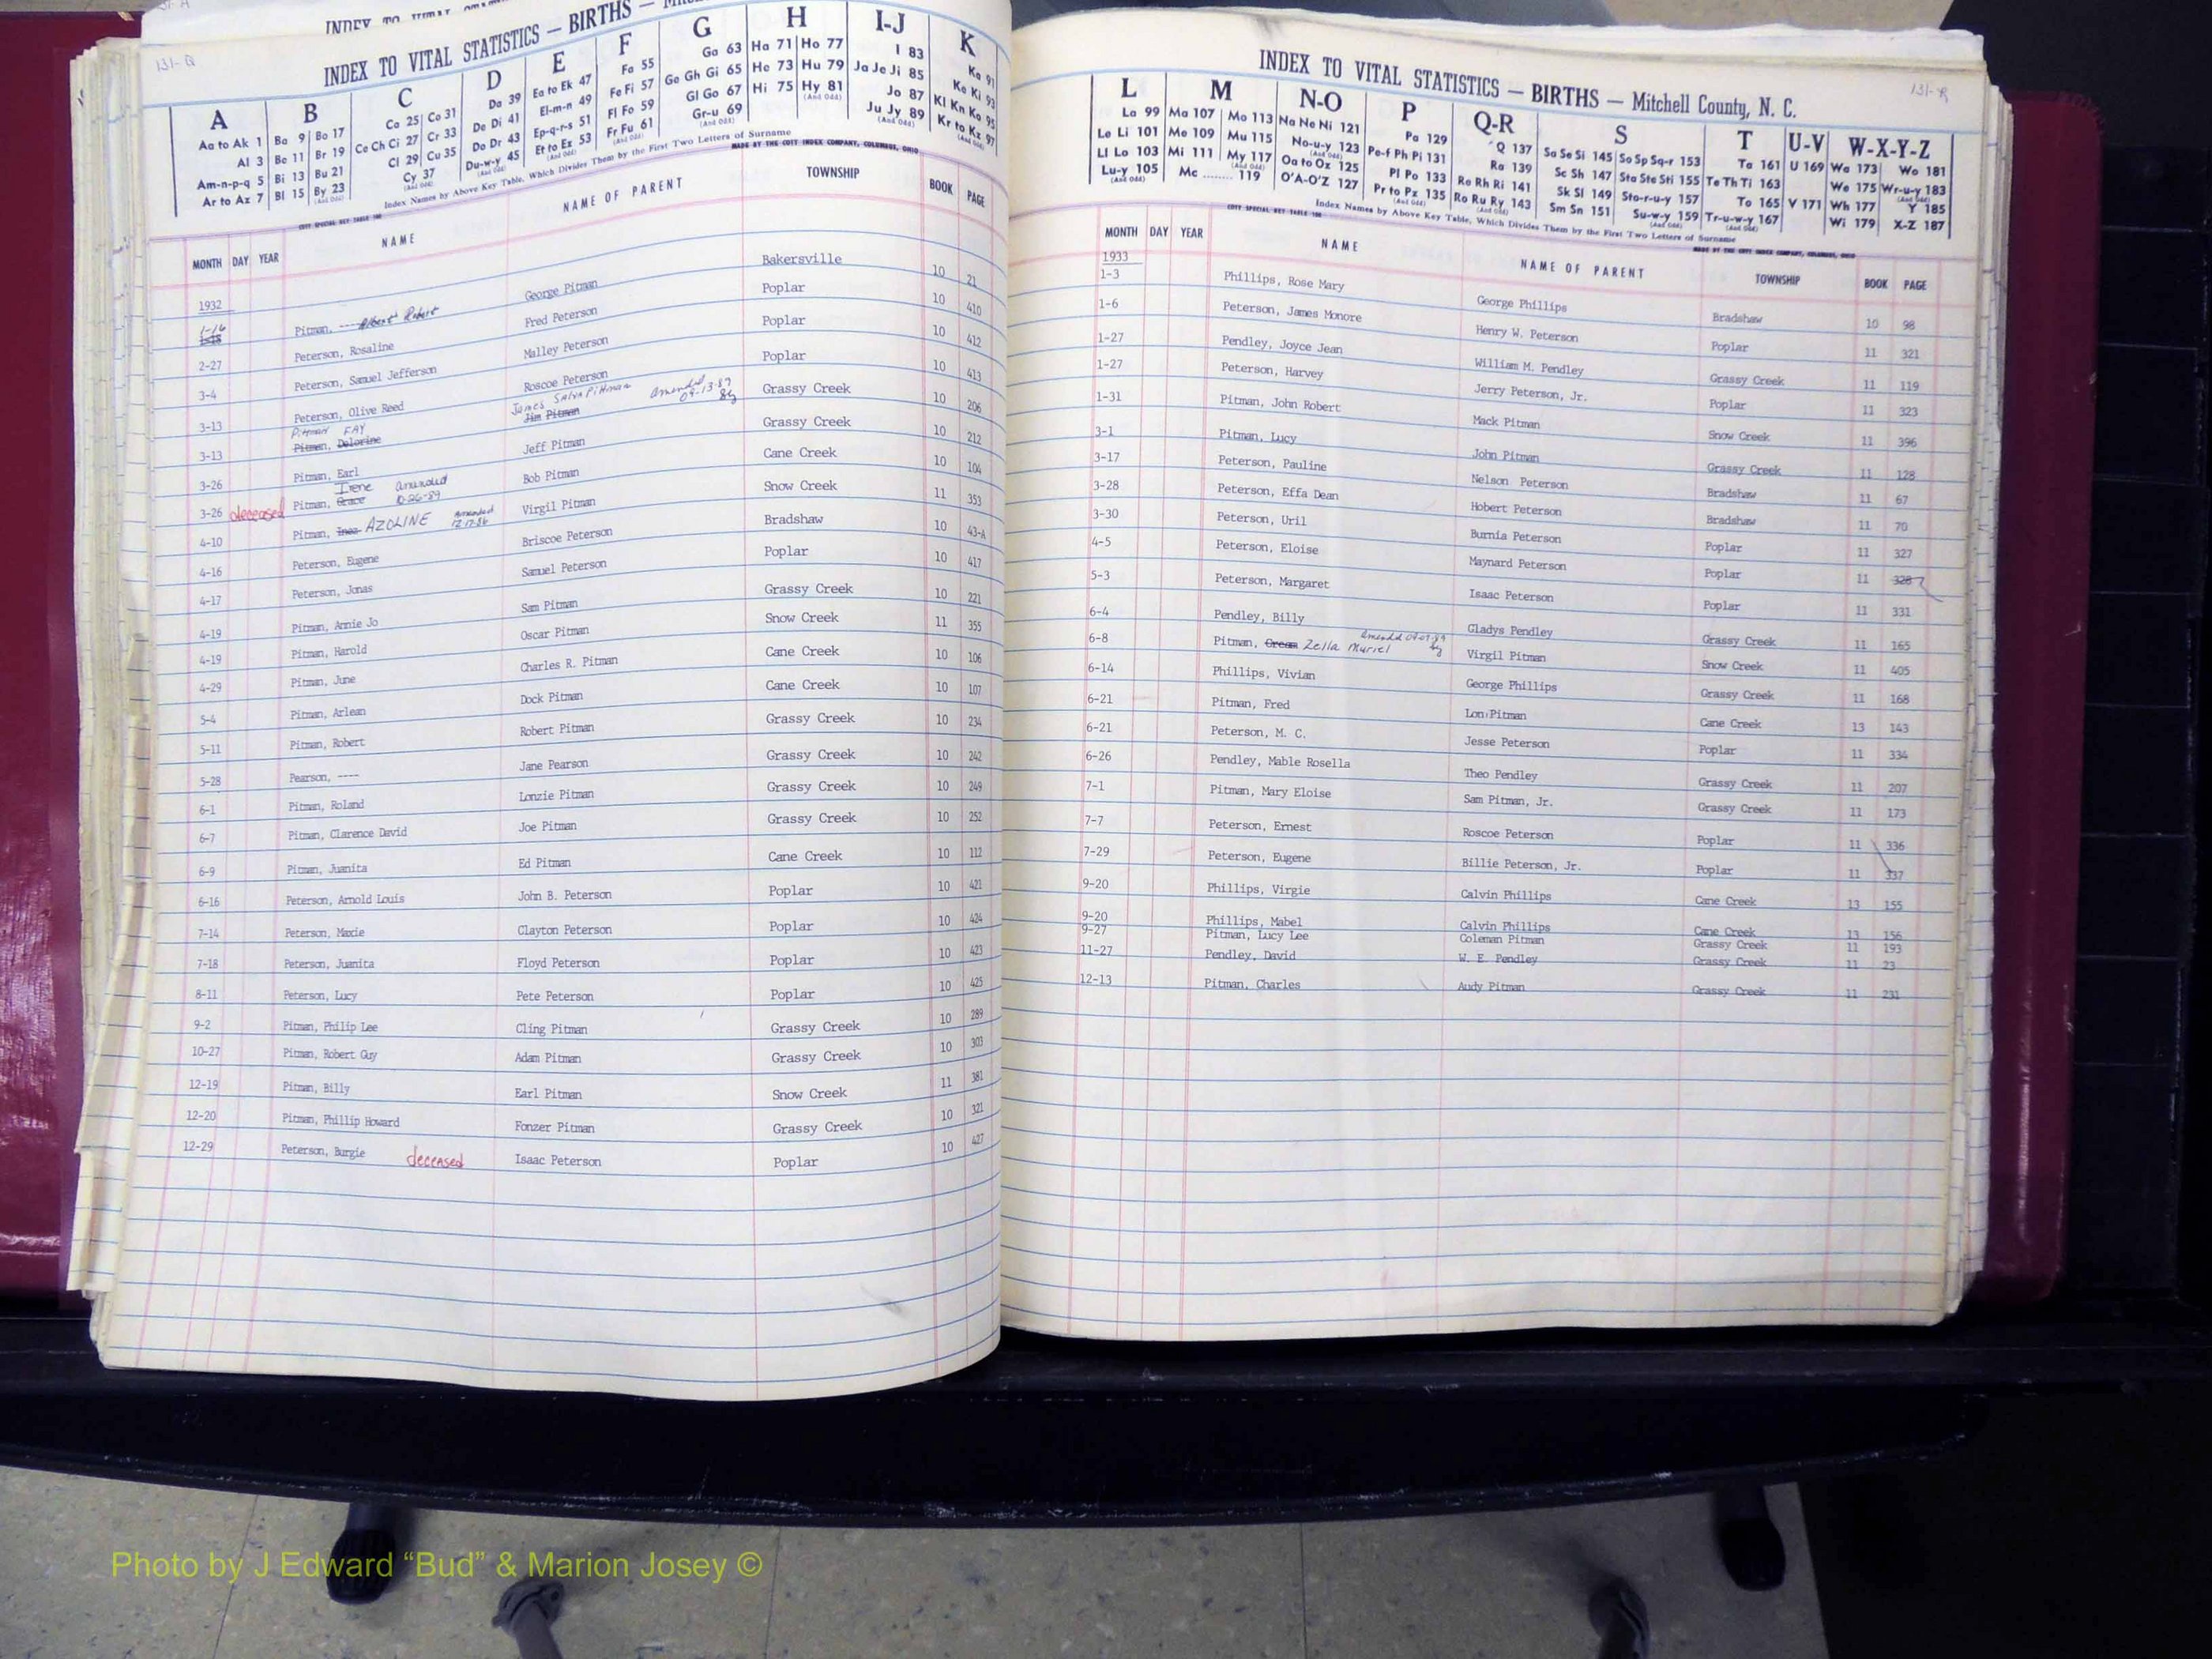 131-Q
INDEX TO VITAL STATISTICS — BIRTHS —
A B C D E F G H I-J K
Aa to Ak 1 Ba 9 Bo 17 Ca 25 Co 31 Da 39 Ea to Ek 47 Fa 55 Ga 63 Ha 71 Ho 77 I 83 Ka 91
Al 3 Be 11 Br 19 Ce Ch Ci 27 Cr 33 De Di 41 El-m-n 49 Fe Fi 57 Ge Gh Gi 65 He 73 Hu 79 Ja Je Ji 85 Ke Ki 93
Am-n-p-q 5 Bi 13 Bu 21 Cl 29 Cu 35 Do Dr 43 Ep-q-r-s 51 Fl Fo 59 Gl Go 67 Hi 75 Hy 81 Jo 87 Kl Kn Ko 95
Ar to Az 7 Bl 15 By 23 Cy 37 Du-w-y 45 Et to Ez 53 Fr Fu 61 Gr-u 69 Ju Jy 89 Kr to Kz 97
Index Names by Above Key Table, Which Divides Them by the First Two Letters of Surname
COTT SPECIAL KEY TABLE 100
MADE BY THE COTT INDEX COMPANY, COLUMBUS, OHIO
MONTH DAY YEAR NAME NAME OF PARENT TOWNSHIP BOOK PAGE
1932
1-16 Pitman, ---- Albert Robert George Pitman Bakersville 10 21
2-27 Peterson, Rosaline Fred Peterson Poplar 10 410
3-4 Peterson, Samuel Jefferson Malley Peterson Poplar 10 412
3-13 Peterson, Olive Reed Roscoe Peterson Poplar 10 413
Pitman FAY James Salva Pitman Amended 09-13-89
3-13 Pitman, Delorine Jim Pitman Grassy Creek 10 206
3-26 Pitman, Earl Jeff Pitman Grassy Creek 10 212
Irene amended 10-26-89
3-26 deceased Pitman, Grace Bob Pitman Cane Creek 10 104
4-10 Pitman, Inez AZOLINE Amended 12-17-86 Virgil Pitman Snow Creek 11 353
4-16 Peterson, Eugene Briscoe Peterson Bradshaw 10 43-A
4-17 Peterson, Jonas Samuel Peterson Poplar 10 417
4-19 Pitman, Annie Jo Sam Pitman Grassy Creek 10 221
4-19 Pitman, Harold Oscar Pitman Snow Creek 11 355
4-29 Pitman, June Charles R. Pitman Cane Creek 10 106
5-4 Pitman, Arlean Dock Pitman Cane Creek 10 107
5-11 Pitman, Robert Robert Pitman Grassy Creek 10 234
5-28 Pearson, ---- Jane Pearson Grassy Creek 10 242
6-1 Pitman, Roland Lonzie Pitman Grassy Creek 10 249
6-7 Pitman, Clarence David Joe Pitman Grassy Creek 10 252
6-9 Pitman, Juanita Ed Pitman Cane Creek 10 112
6-16 Peterson, Arnold Louis John B. Peterson Poplar 10 421
7-14 Peterson, Maxie Clayton Peterson Poplar 10 424
7-18 Peterson, Juanita Floyd Peterson Poplar 10 423
8-11 Peterson, Lucy Pete Peterson Poplar 10 425
9-2 Pitman, Philip Lee Cling Pitman Grassy Creek 10 289
10-27 Pitman, Robert Guy Adam Pitman Grassy Creek 10 303
12-19 Pitman, Billy Earl Pitman Snow Creek 11 381
12-20 Pitman, Phillip Howard Fonzer Pitman Grassy Creek 10 321
12-29 Peterson, Burgie deceased Isaac Peterson Poplar 10 427
131-R
INDEX TO VITAL STATISTICS — BIRTHS — Mitchell County, N. C.
L M N-O P Q-R S T U-V W-X-Y-Z
La 99 Ma 107 Mo 113 Na Ne Ni 121 Pa 129 Q 137 Sa Se Si 145 So Sp Sq-r 153 Ta 161 U 169 Wa 173 Wo 181
Le Li 101 Me 109 Mu 115 No-u-y 123 Pe-f Ph Pi 131 Ra 139 Sc Sh 147 Sta Ste Sti 155 Te Th Ti 163 We 175 Wr-u-y 183
Ll Lo 103 Mi 111 My 117 Oa to Oz 125 Pl Po 133 Re Rh Ri 141 Sk Sl 149 Sto-r-u-y 157 To 165 V 171 Wh 177 Y 185
Lu-y 105 Mc ........ 119 O'A-O'Z 127 Pr to Pz 135 Ro Ru Ry 143 Sm Sn 151 Su-w-y 159 Tr-u-w-y 167 Wi 179 X-Z 187
Index Names by Above Key Table, Which Divides Them by the First Two Letters of Surname
COTT SPECIAL KEY TABLE 100
MADE BY THE COTT INDEX COMPANY, COLUMBUS, OHIO
MONTH DAY YEAR NAME NAME OF PARENT TOWNSHIP BOOK PAGE
1933
1-3 Phillips, Rose Mary George Phillips Bradshaw 10 98
1-6 Peterson, James Monore Henry W. Peterson Poplar 11 321
1-27 Pendley, Joyce Jean William M. Pendley Grassy Creek 11 119
1-27 Peterson, Harvey Jerry Peterson, Jr. Poplar 11 323
1-31 Pitman, John Robert Mack Pitman Snow Creek 11 396
3-1 Pitman, Lucy John Pitman Grassy Creek 11 128
3-17 Peterson, Pauline Nelson Peterson Bradshaw 11 67
3-28 Peterson, Effa Dean Hobert Peterson Bradshaw 11 70
3-30 Peterson, Uril Burnia Peterson Poplar 11 327
4-5 Peterson, Eloise Maynard Peterson Poplar 11 328
5-3 Peterson, Margaret Isaac Peterson Poplar 11 331
6-4 Pendley, Billy Gladys Pendley Grassy Creek 11 165
6-8 Pitman, Zella Muriel Virgil Pitman Snow Creek 11 405
6-14 Phillips, Vivian George Phillips Grassy Creek 11 168
6-21 Pitman, Fred Lon Pitman Cane Creek 13 143
6-21 Peterson, M. C. Jesse Peterson Poplar 11 334
6-26 Pendley, Mable Rosella Theo Pendley Grassy Creek 11 207
7-1 Pitman, Mary Eloise Sam Pitman, Jr. Grassy Creek 11 173
7-7 Peterson, Ernest Roscoe Peterson Poplar 11 336
7-29 Peterson, Eugene Billie Peterson, Jr. Poplar 11 337
9-20 Phillips, Virgie Calvin Phillips Cane Creek 13 155
9-20 Phillips, Mabel Calvin Phillips Cane Creek 13 156
9-27 Pitman, Lucy Lee Coleman Pitman Grassy Creek 11 193
11-27 Pendley, David W. E. Pendley Grassy Creek 11 23
12-13 Pitman, Charles Audy Pitman Grassy Creek 11 231
Photo by J Edward “Bud” & Marion Josey ©